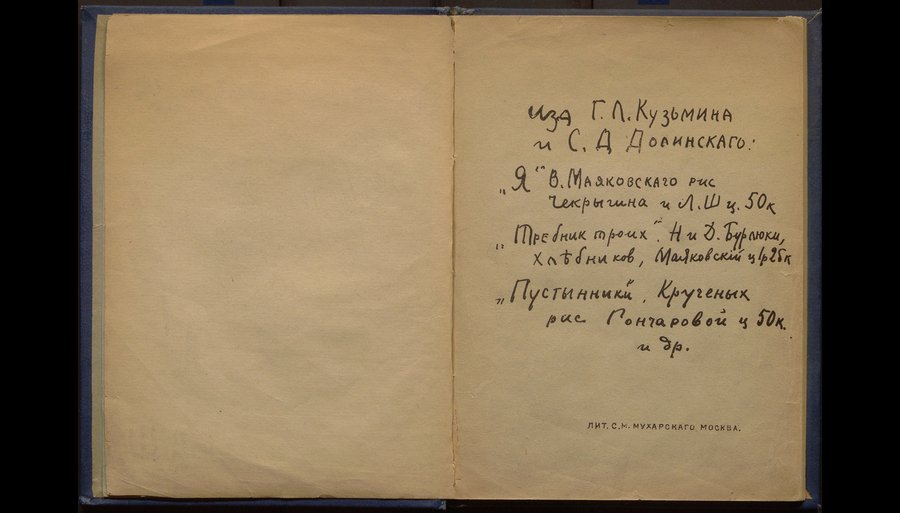 изд Г. Л. Кузьмина
и С. Д Долинскаго:
„Я" В. Маяковскаго рис
Чекрыгина и Л. Ш ц. 50к
„Требник троих". Н и Д. Бурлюки,
Хлѣбников, Маяковскій ц 1р 25к
„Пустынники", Крученых
рис Гончаровой ц 50к.
и др.
ЛИТ. С. М. МУХАРСКАГО МОСКВА.